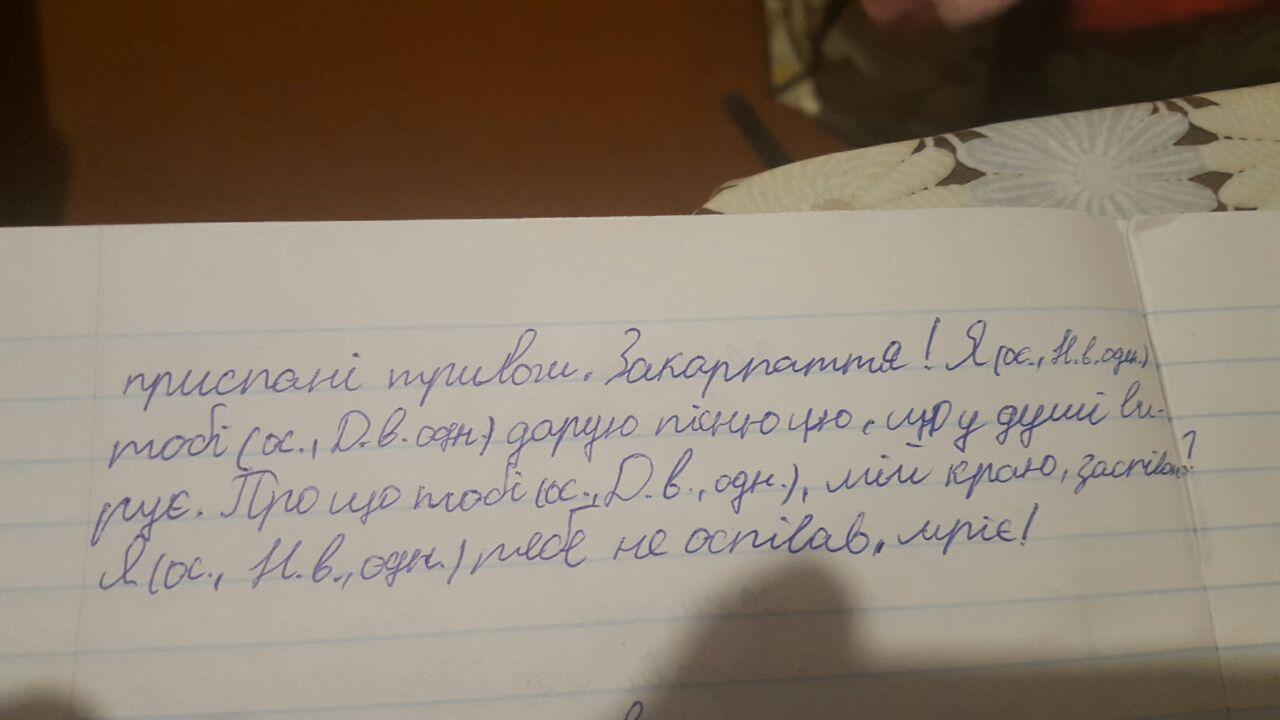 приспані тривоги. Закарпаття! Я (ос., Н.в. одн.)
тобі (ос., Д.в. одн.) дарую пісню цю, що у душі ви-
рує. Про що тобі (ос., Д.в., одн.), мій краю, заспіваю?
Я (ос., Н.в., одн.) тебе не оспівав, мріє!